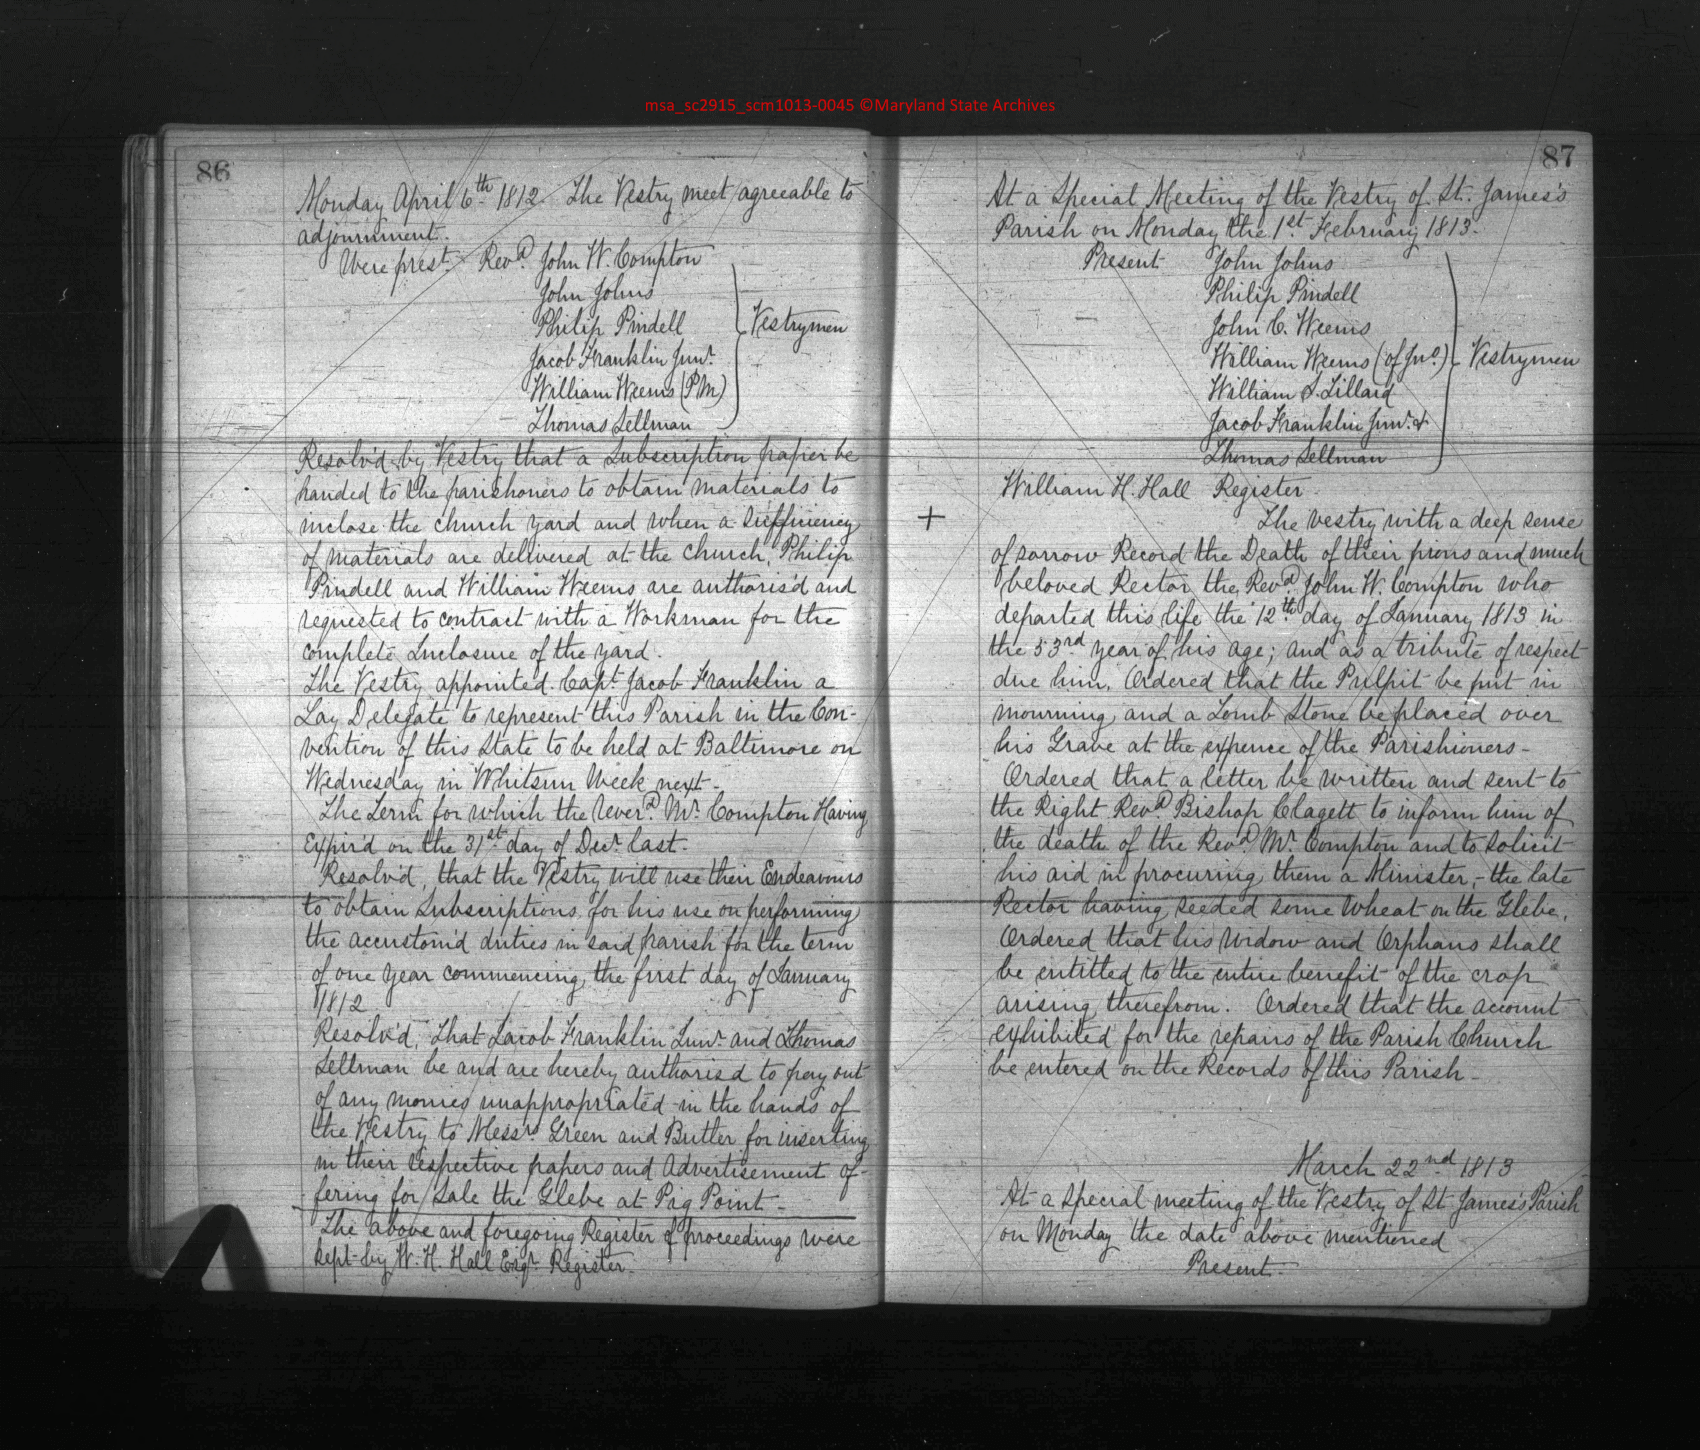 msa_sc2915_scm1013-0045 ©Maryland State Archives
86
Monday April 6th 1812. The Vestry meet agreeable to
adjournment.
Were prest. Revd. John W. Compton
John Johns
Philip Pindell
Jacob Franklin Junr.
William Weems (PM)
Thomas Sellman
Vestrymen
Resolv'd by Vestry that a Subscription paper be
handed to the parishoners to obtain materials to
inclose the church yard and when a sufficiency
of materials are delivered at the church, Philip
Pindell and William Weems are authoris'd and
requested to contract with a Workman for the
complete Inclosure of the yard.
The Vestry appointed Capt. Jacob Franklin a
Lay Delegate to represent this Parish in the Con-
vention of this State to be held at Baltimore on
Wednesday in Whitsun Week next.
The Term for which the reverd. Mr. Compton Having
Expir'd on the 31st day of Decr. last.
Resolv'd, that the Vestry will use their Endeavours
to obtain Subscriptions for his use on performing
the accustom'd duties in said parish for the term
of one year commencing the first day of January
1812
Resolv'd, That Jacob Franklin Junr. and Thomas
Sellman be and are hereby authorisd to pay out
of any monies unappropriated in the hands of
the Vestry to Messrs Green and Butler for inserting
in their respective papers and Advertisement of-
fering for Sale the Glebe at Pig Point -
The above and foregoing Register of proceedings were
kept by W. H. Hall Esqr. Register.
87
At a Special Meeting of the Vestry of St. James's
Parish on Monday the 1st. February 1813.
Present John Johns
Philip Pindell
John C. Weems
William Weems (of Jno.)
William S. Lillard
Jacob Franklin Junr. &
Thomas Sellman
Vestrymen
William H. Hall Register
+ The vestry with a deep sense
of sorrow Record the Death of their pious and much
beloved Rector the Revd. John W. Compton who
departed this life the 12th day of January 1813 in
the 53rd year of his age; and as a tribute of respect
due him, Ordered that the Pulpit be put in
mourning and a Tomb Stone be placed over
his Grave at the expence of the Parishioners -
Ordered that a letter be written and sent to
the Right Revd. Bishop Clagett to inform him of
the death of the Revd. Mr. Compton and to Solicit
his aid in procuring them a Minister, - the late
Rector having seeded some wheat on the Glebe,
Ordered that his widow and Orphans shall
be entitled to the entire benefit of the crop
arising therefrom. Ordered that the account
exhibited for the repairs of the Parish Church
be entered on the Records of this Parish -
March 22nd 1813
At a special meeting of the Vestry of St James's Parish
on Monday the date above mentioned
Present.